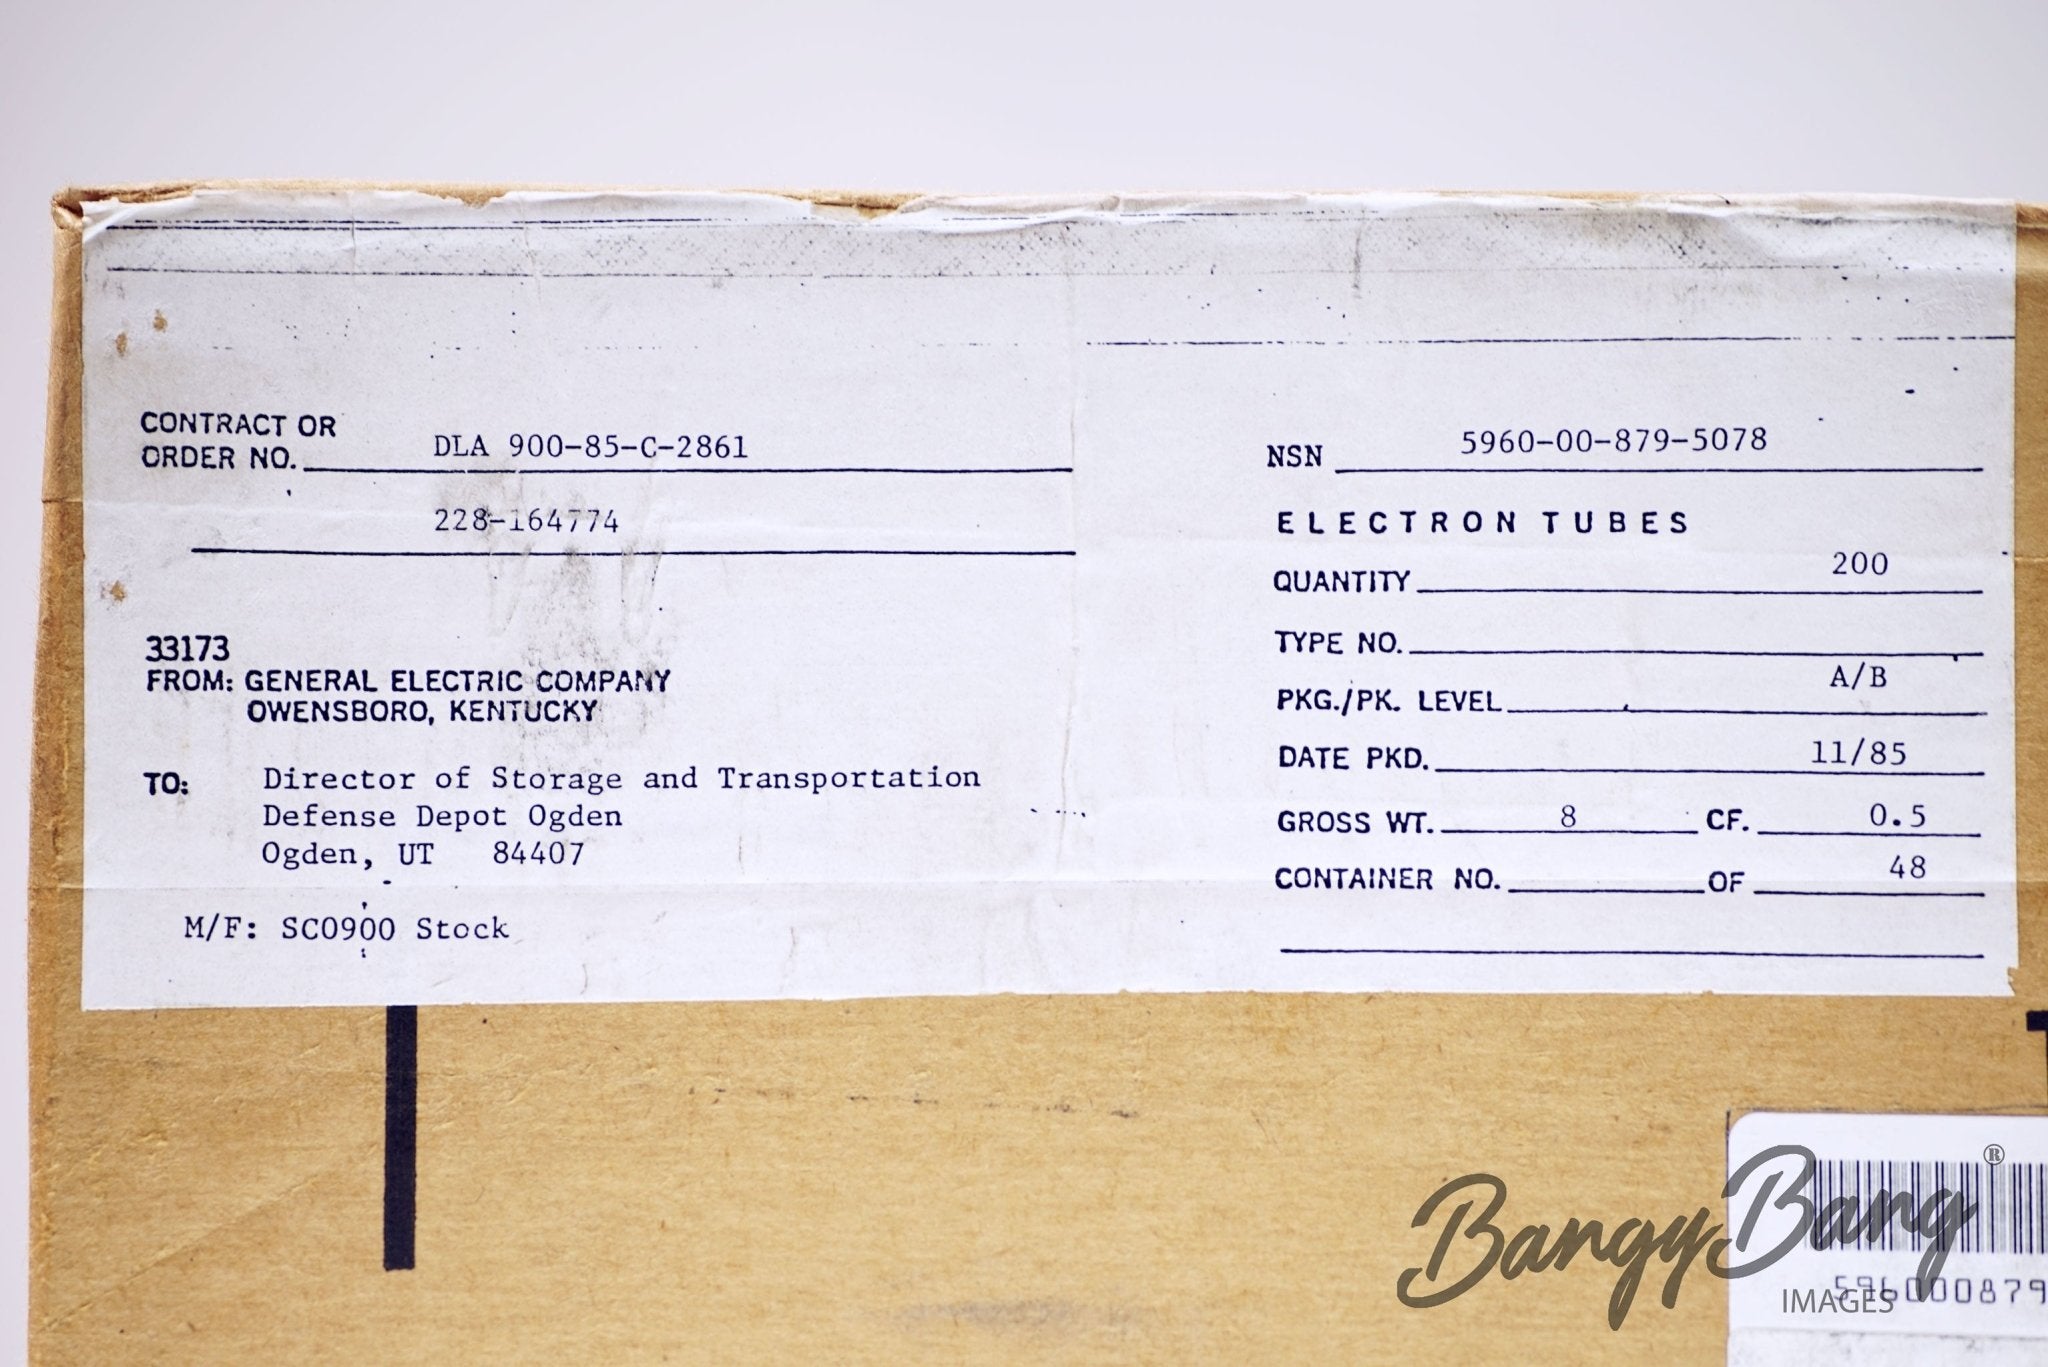 CONTRACT OR
ORDER NO. DLA 900-85-C-2861
228-164774
33173
FROM: GENERAL ELECTRIC COMPANY
OWENSBORO, KENTUCKY
TO: Director of Storage and Transportation
Defense Depot Ogden
Ogden, UT 84407
M/F: SC0900 Stock
NSN 5960-00-879-5078
ELECTRON TUBES
QUANTITY 200
TYPE NO.
PKG./PK. LEVEL A/B
DATE PKD. 11/85
GROSS WT. 8 CF. 0.5
CONTAINER NO. OF 48
BangyBang®
IMAGES
596000879